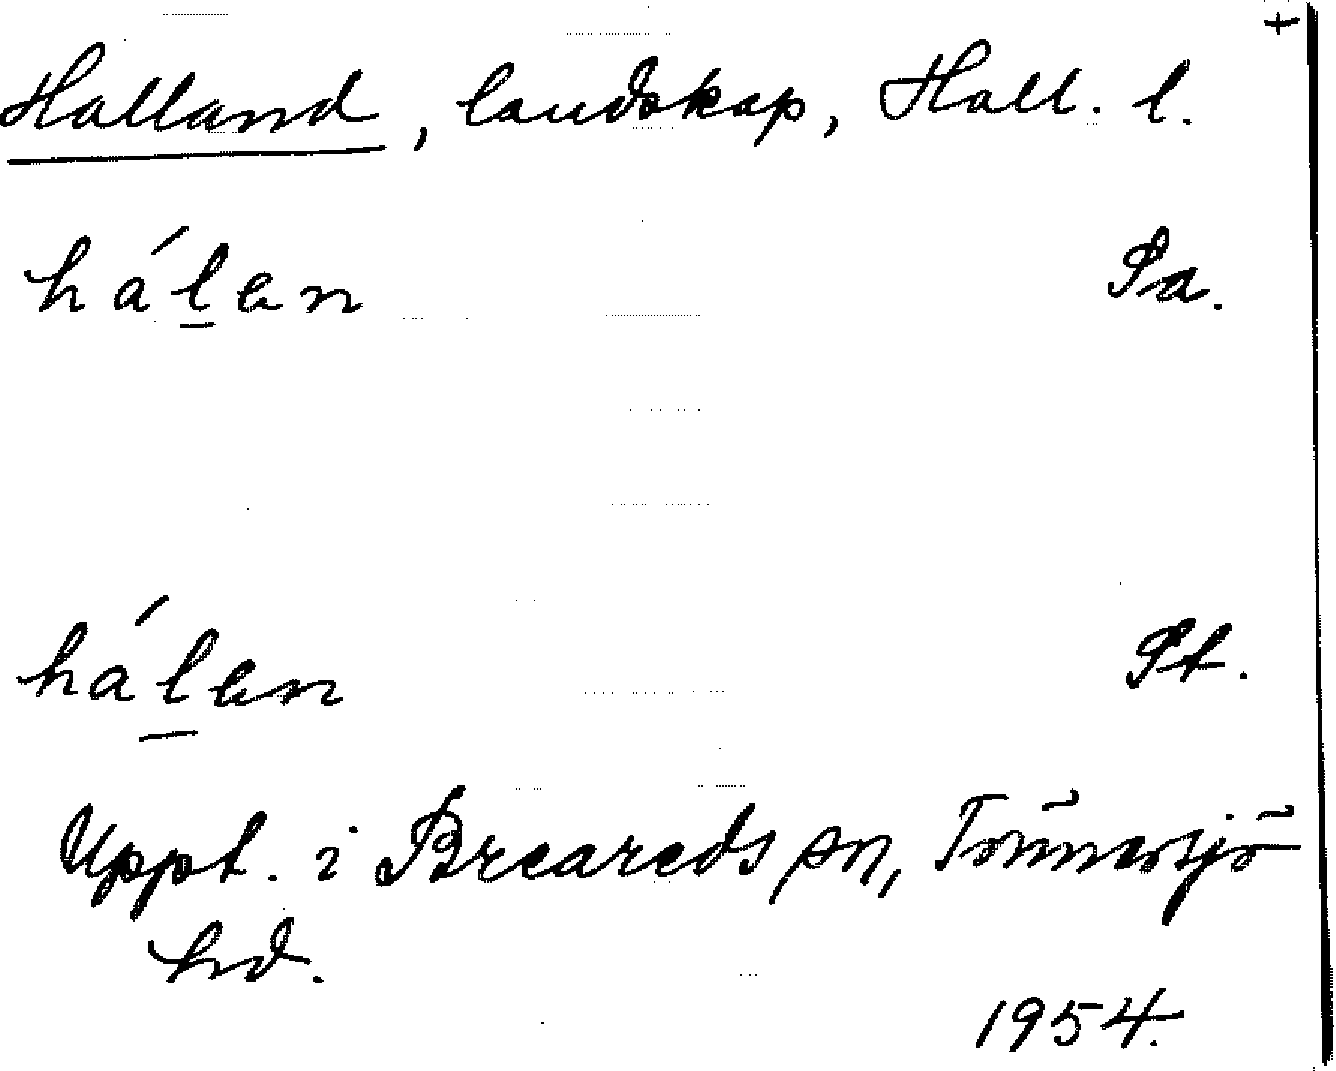 +
Halland, landskap, Hall. l.
há̱len Pa.
há̱len Pt.
Uppt. i Breareds sn, Tönnersjö
hd.
1954.